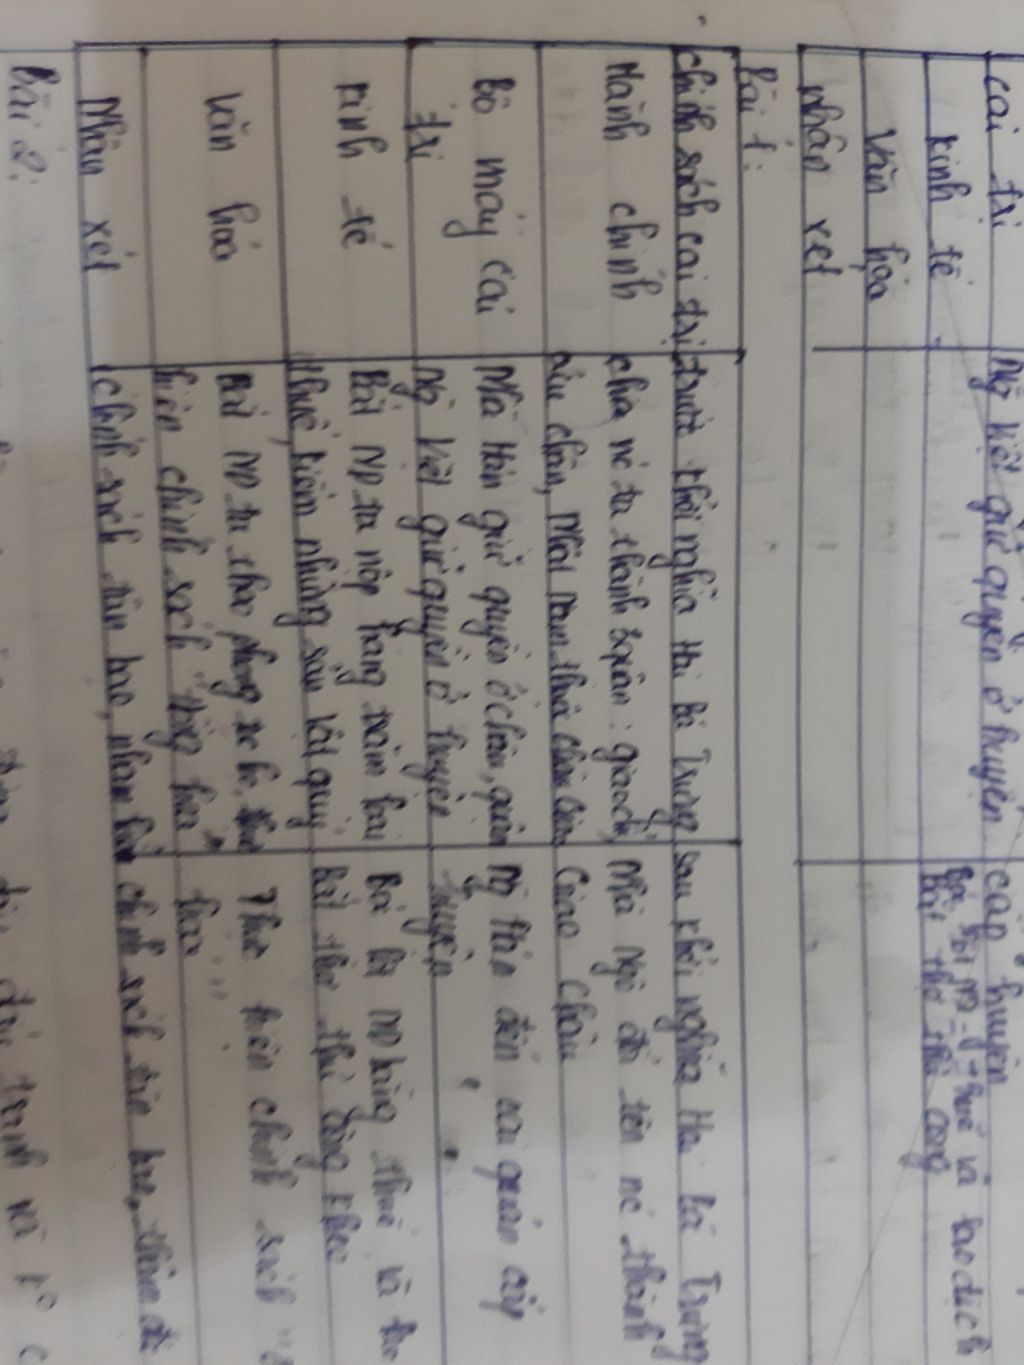 cai trị
Ng Việt giữ quyền ở huyện
cấp huyện
kinh tế
Bóc lột ND = thuế và lao dịch
Bắt thợ thủ công
Văn hóa
nhận xét
Bài 1:
Chính sách cai trị
trước khởi nghĩa Hai Bà Trưng
sau khởi nghĩa Hai Bà Trưng
Hành chính
chia nc ta thành 3 quận: giao chỉ,
cửu chân, Nhật nam thuộc châu Giao
Nhà Ngô đổi tên nc thành
Giao Châu
Bộ máy cai
trị
Nhà Hán giữ quyền ở châu, quận
Ng Việt giữ quyền ở huyện
Ng Hán đến cai quản cấp
huyện
kinh tế
Bắt ND ta nộp hàng trăm loại
thuế, kiếm những sản vật quý
Bóc lột ND bằng thuế và lao
Bắt thợ thủ công khéo
văn hóa
Bắt ND ta theo phong tục
hiện chính sách "đồng hóa"
Thực hiện chính sách "
hóa"
Nhận xét
chính sách tàn bạo,
chính sách tàn bạo, thâm độc
Bài 2:
đấu tranh và